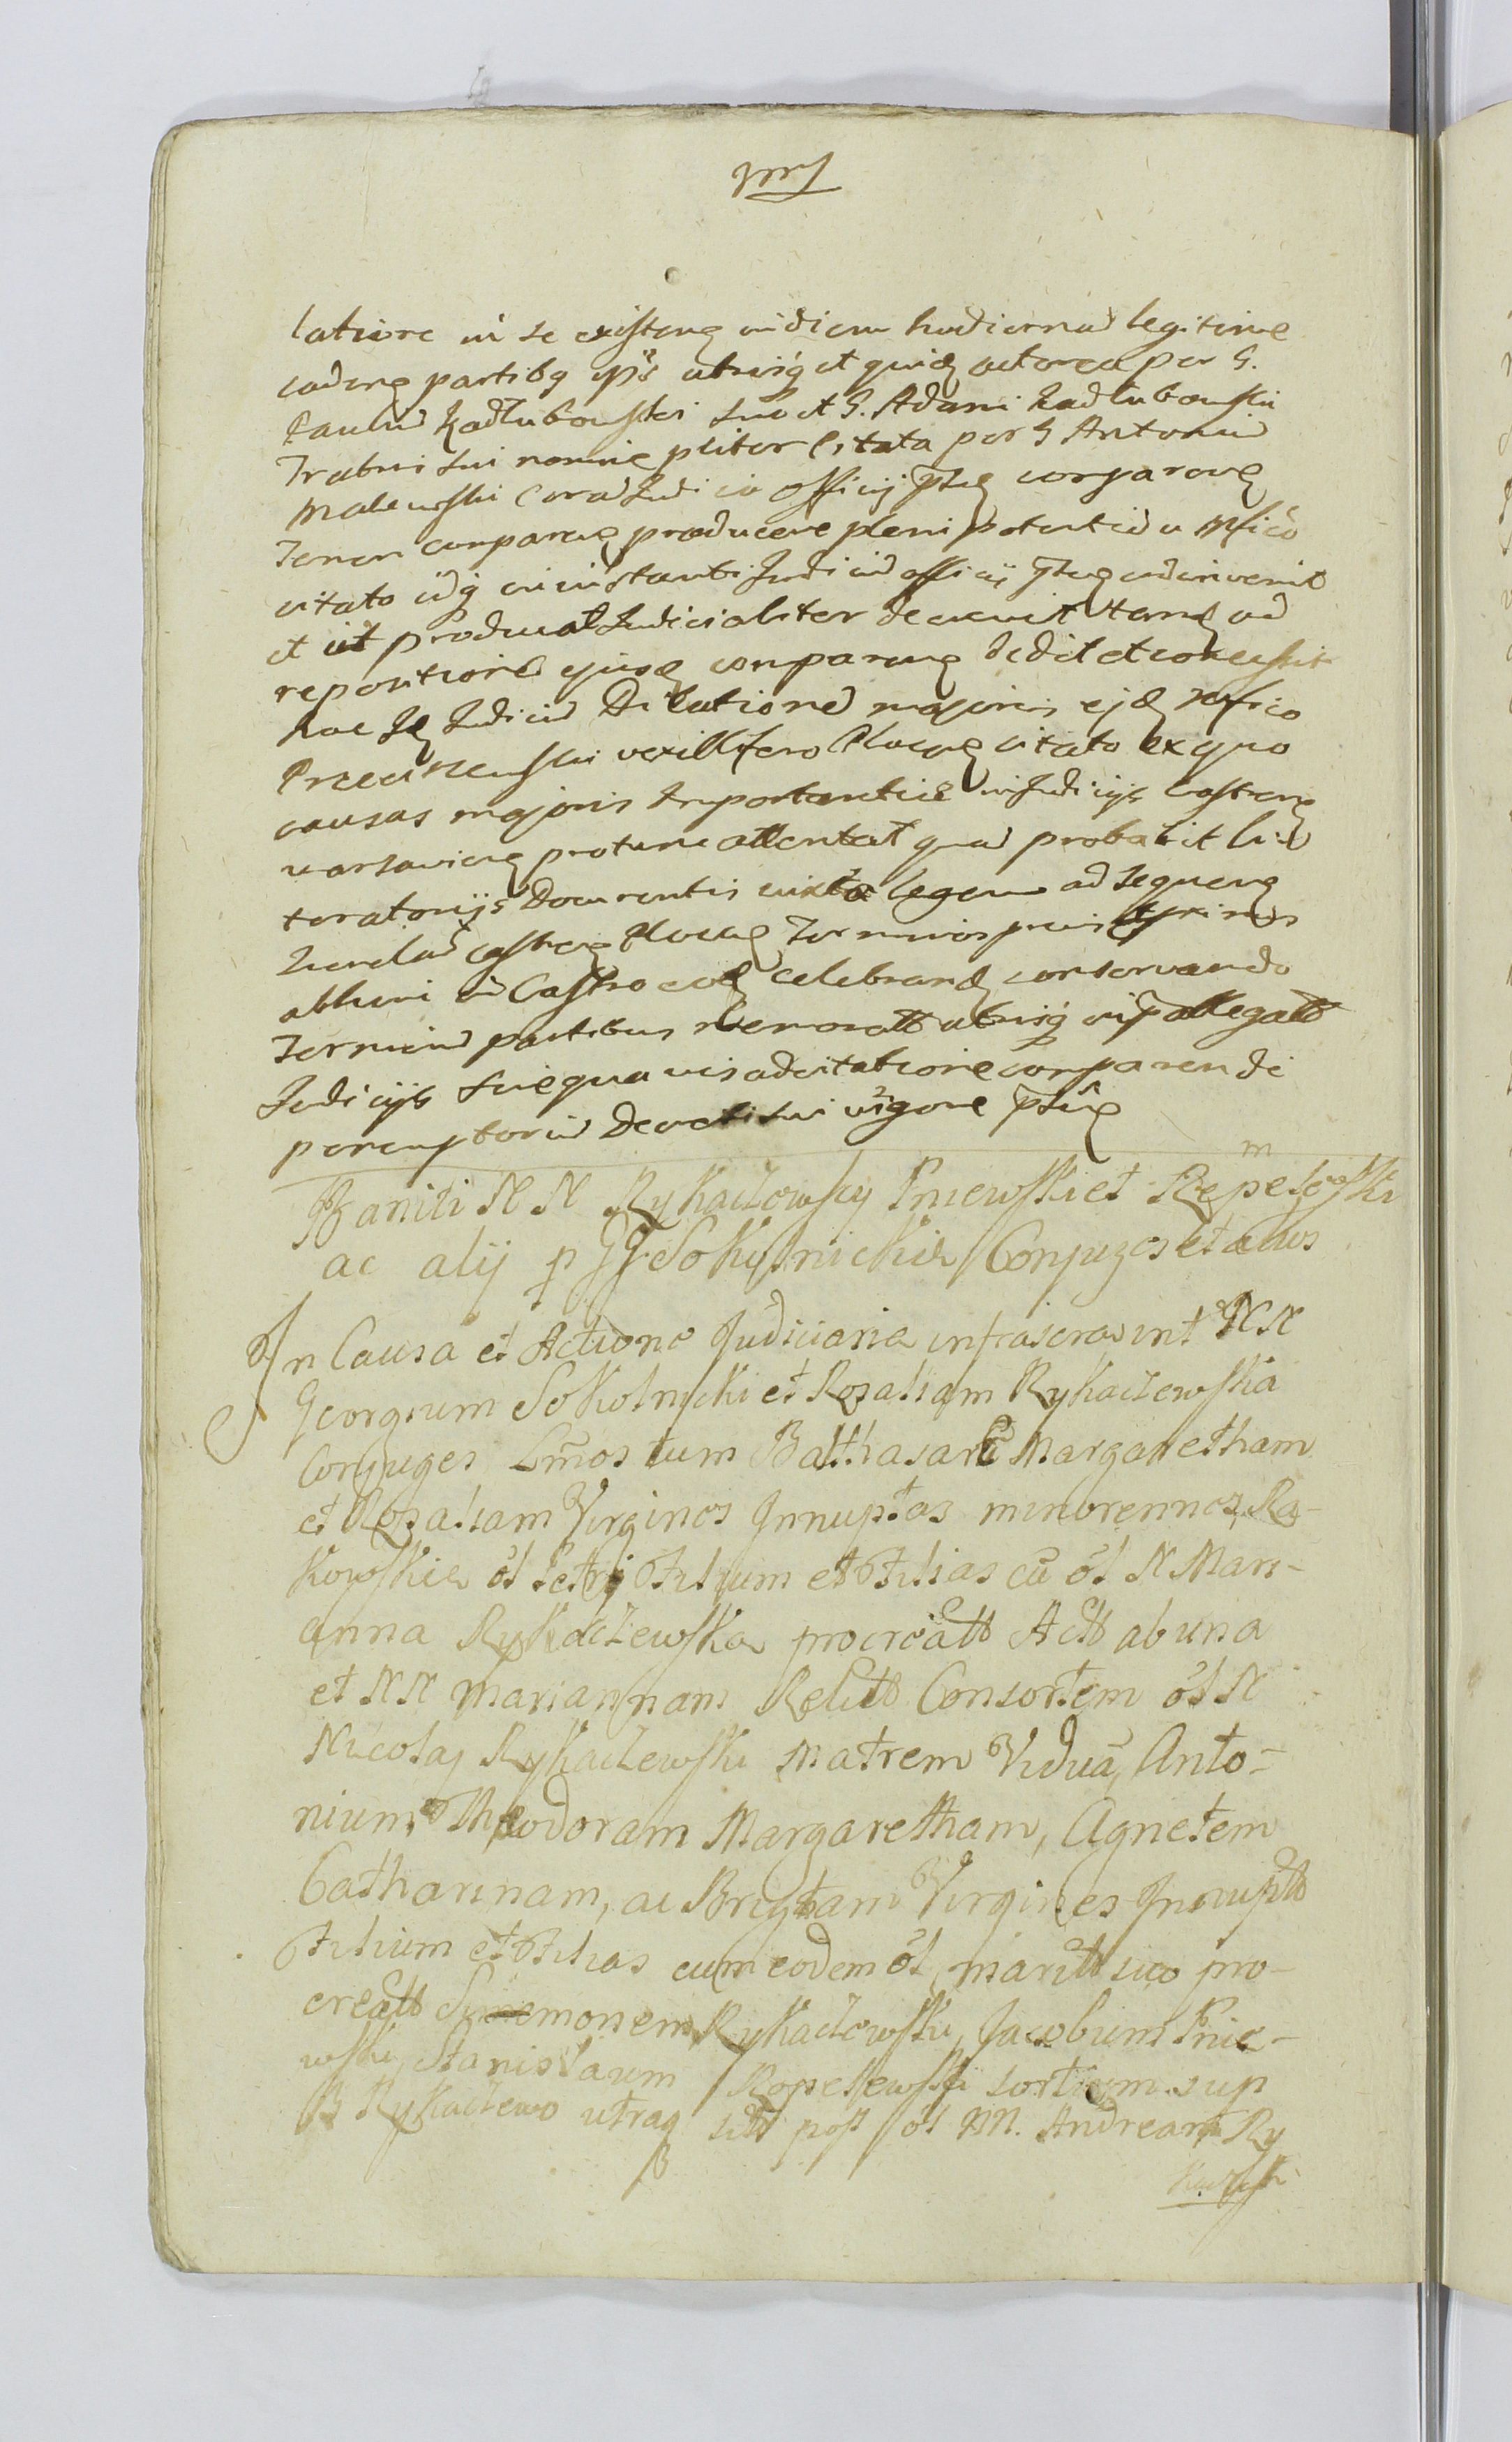 latiore in se existens in diem hodierna legitime
cadens partibq ip̄is utrisq et quidē actorea per G.
Paulu Kadłubowski suo et G. Adami Kadłubowski
Fratris sui nomine pliter Citata per G Antoniu
Malewski Cora Judicio officij pn̄tis comparens
Tenen comparens producere plenipotentia a Mfico
citato idq in instanti Judiciu officij adinvenit
et ut producat Judicialiter decrevit tandē ad
repositione ejusdē comparens dedit et concessit
hac Judiciu Dilatione majoris ejdē Mfico
Przeciszewski vexillifero Plocens citato ex quo
causas majoris Importantiæ in Judicijs Castrens
varsaviens protunc attentat qua probabit lit
teratorijs Documentis iuxta legem ad sequens
Querelar castrens Plocens Terminos
abhinc in Castro eodē celebrandē conservando
Terminu partibus memoratt utrisq in p̄allegatt
Judicijs sine quavis adcitatione comparendi
peremptoriu Decreti sui vigore pn̄tis
m
Baniti N N Rykaczewsky Pniewski et Repelewski
ac alij p GG Sokolnickie Conjuges et alios
In Causa et Actione Judiciaria infrascra int NN
Georgium Sokolnicki et Rozaliam Rykaczewska
Conjuges Lmos tum Balthasare Margaretham
et Rozaliam Virgines Innuptas minorennes, Ra-
kowskie ol Petri Filium et Filias cū ol N Mari-
anna Rykaczewska procreatt Actt ab una
et NN Mariannam Relictt Consortem ol N
Nicolai Rykaczewski Matrem Viduā, Anto-
nium, Theodoram Margaretham, Agnetem
Catharinam, ac Brigitam Virgines Innuptt
Filium et Filias cum eodem ol, maritt suo pro-
creatt Simemonem Rykaczewski, Jacobum Pnie-
wski, Stanisłaum Ropelewski sortium sup
B Rykaczewo utraq sitt post ol NN. Andream Ry